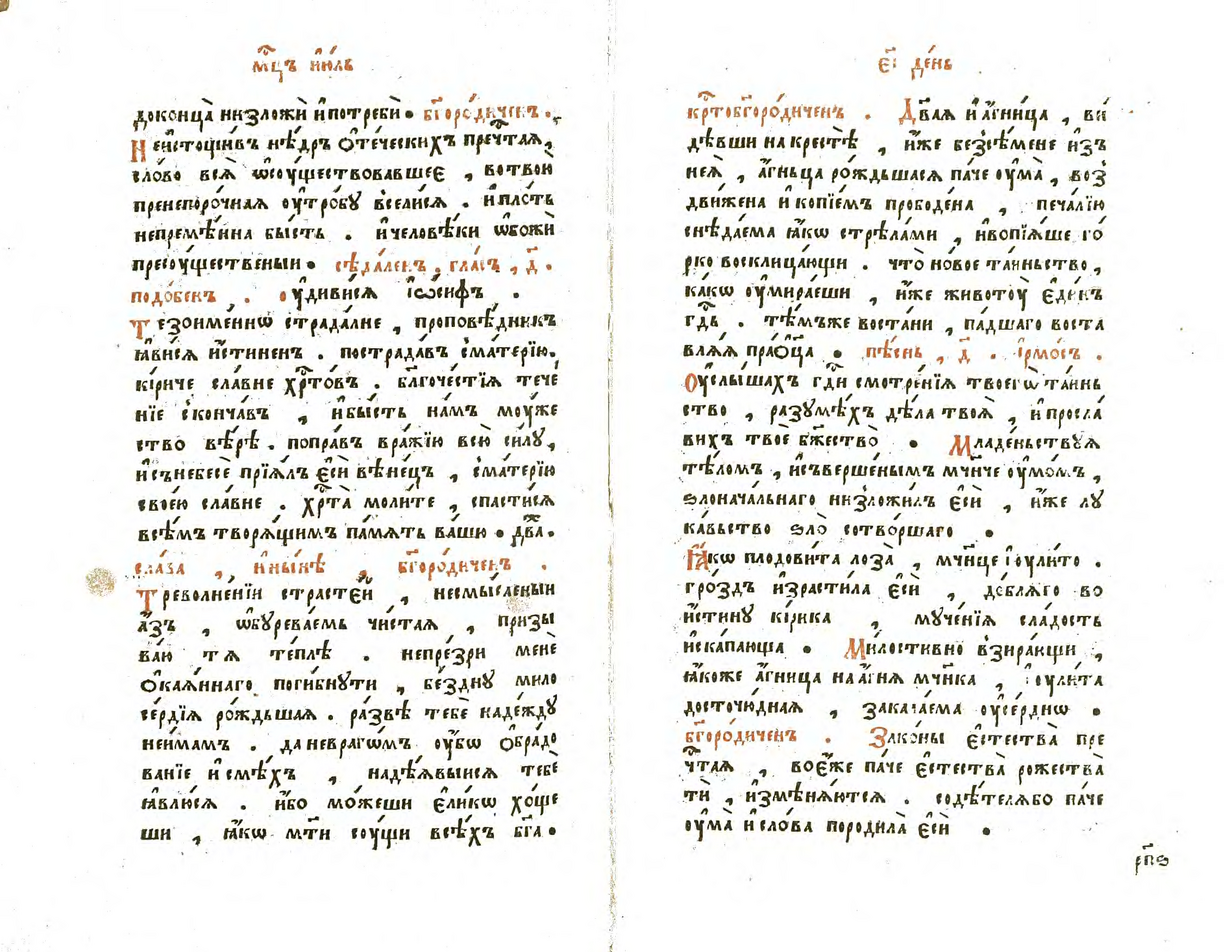 мⷭ҇цъ і҆ю́ль
доконца̀ низложѝ и҆потребѝ. бг҃оро́диченъ.
Неи҆стощи́въ нѣ́дръ ѻ҆те́ческихъ пречⷭ҇тая,
сло́во всѧ̀ ѡ҆сꙋществова́вшее , вотвою̀
пренепоро́чнꙋю ᲂу҆тро́бꙋ всели́сѧ . и҆пло́ть
непремѣ́нна бы́сть . и҆человѣ́ки ѡ҆божѝ
пресꙋ́щественыи. сѣда́ленъ , гла́съ , д҃ .
подо́бенъ , . ᲂу҆диви́сѧ і҆ѡ́сифъ .
Тезоимени́нѡ страда́лне , проповѣ́дникъ
ꙗ҆ви́сѧ и҆́стиненъ . пострада́въ сма́терїю.
кі́риче сла́вне хрⷭ҇то́въ . благоче́стїѧ тече
нїе сконча́въ , и҆бы́сть на́мъ мꙋ́же
ство вѣ́рѣ . попра́въ вра́жїю всю̀ си́лꙋ,
и҆съ небесѐ прїѧ́лъ є҆сѝ вѣне́цъ , сма́терїю
свое́ю сла́вне . хрⷭ҇та̀ моли́те , спасти́сѧ
всѣ́мъ творѧ́щимъ па́мѧть ва́шю . два́.
сла́ва , и҆ны́нѣ , бг҃оро́диченъ .
Треволне́нїи страсте́й , несмы́сленыи
а҆́зъ , ѡ҆бꙋрева́емь чи́стая , призы
ва́ю тѧ̀ те́плѣ . непре́зри менѐ
ѻ҆каѧ́ннаго поги́бнꙋти , бе́зднꙋ мило
се́рдїѧ ро́ждьшая . ра́звѣ тебѐ наде́ждꙋ
неи҆́мамъ . даневраго́мъ ᲂу҆́бѡ ѻ҆бра́до
ванїе и҆сме́хъ , надѣ́ѧвыисѧ тебѐ
ꙗ҆влю́сѧ . и҆́бо мо́жеши є҆ли́кѡ хо́ще
ши , ꙗ҆́кѡ мт҃и сꙋ́щи всѣ́хъ бг҃а.
є҃і де́нь
крⷭ҇тобг҃оро́диченъ . Два́я и҆а҆́гница , ви́
дѣвши на крестѣ̀ , и҆́же безсѣ́мене и҆зъ
неѧ̀ , а҆́гньца ро́ждьшасѧ па́че ᲂу҆ма̀ , воз
дви́жена и҆копїе́мъ прободе́на , печа́лїю
снѣ́даема ꙗ҆́кѡ стрѣ́лами , и҆вопїѧ́ше го́
рко восклица́ющи . что̀ но́вое та́иньство,
ка́кѡ ᲂу҆мира́еши , и҆́же живото́ꙋ є҆ди́нъ
гдⷭ҇ь . тѣ́мъже воста́ни , па́дшаго воста
влѧ́ѧ праѻ҆ц҃а . пѣ́снь , д҃ . і҆рмо́съ .
ᲂу҆слы́шахъ гдⷭ҇и смотре́нїѧ твоегѡ̀ та́инь
ство , разꙋмѣ́хъ дѣ́ла твоѧ̀ , и҆просла́
вихъ твоѐ бж҃ество̀ . Младе́ньствꙋѧ
тѣ́ломъ , и҆съверше́нымъ мч҃ниче ᲂу҆мо́мъ ,
ѕлонача́льнаго низложи́лъ є҆сѝ , и҆́же лꙋ
ка́вьство ѕло̀ сотво́ршаго .
Ꙗ҆́кѡ плодови́та лоза̀ , мч҃нице і҆ᲂули́то .
гро́здъ и҆зрасти́ла є҆сѝ , до́блѧго во
и҆́стинꙋ кі́рика , мꙋче́нїѧ сла́дость
и҆скапа́юща . Ми́лостивно взира́ющи ,
ꙗ҆́коже а҆́гница на а҆́гнѧ мч҃нка , і҆ᲂули́та
досточю́дная , закала́ема ᲂу҆се́рднѡ .
бг҃оро́диченъ . Зако́ны є҆стества̀ пре
чⷭ҇тая , воє҆́же па́че є҆стества̀ рожества̀
тѝ , и҆змѣнѧ́ютсѧ . содѣ́телѧбо па́че
ᲂу҆ма̀ и҆сло́ва породила̀ є҆сѝ .
рп҃ѕ